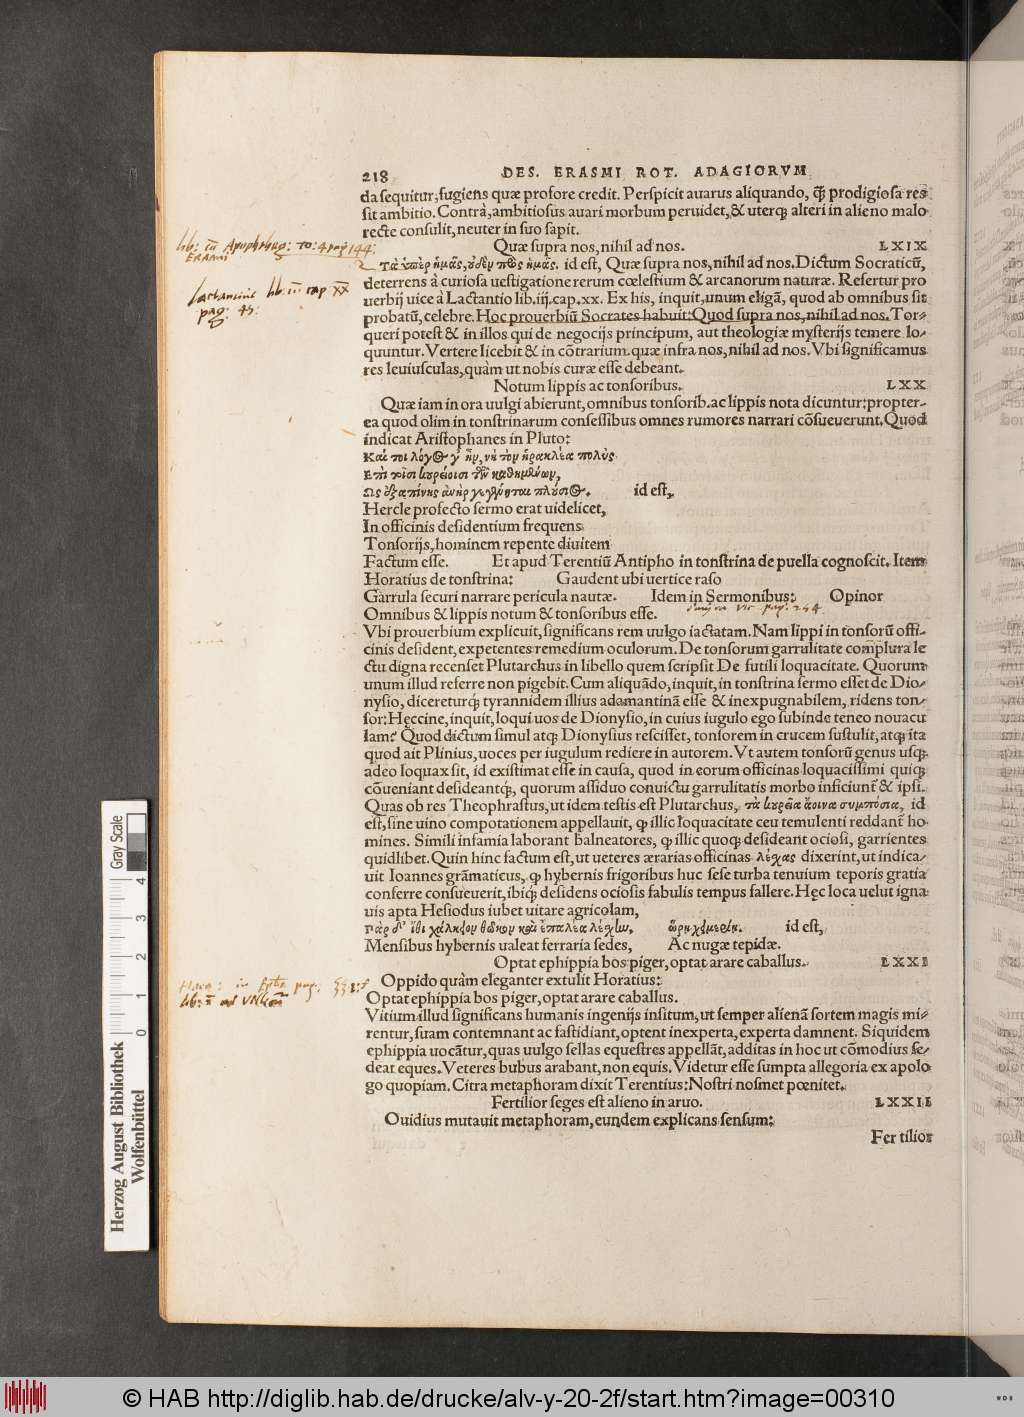 218 DES. ERASMI ROT. ADAGIORVM
da sequitur, fugiens quæ profore credit. Perspicit auarus aliquando, q̃ꝫ prodigiosa res
sit ambitio. Contrà, ambitiosus auari morbum peruidet, & uterqꝫ alteri in alieno malo
recte consulit, neuter in suo sapit.
Quæ supra nos, nihil ad nos. LXIX
Τὰ ὑπὲρ ἡμᾶς, οὐδὲν πρὸς ἡμᾶς. id est, Quæ supra nos, nihil ad nos. Dictum Socraticũ,
deterrens à curiosa uestigatione rerum cœlestium & arcanorum naturæ. Refertur pro
uerbij uice à Lactantio lib.iij.cap.xx. Ex his, inquit, unum eligã, quod ab omnibus sit
probatũ, celebre. Hoc prouerbiũ Socrates habuit: Quod supra nos, nihil ad nos. Tor-
queri potest & in illos qui de negocijs principum, aut theologiæ mysterijs temere lo-
quuntur. Vertere licebit & in cõtrarium. quæ infra nos, nihil ad nos. Vbi significamus
res leuiusculas, quàm ut nobis curæ esse debeant.
Notum lippis ac tonsoribus. LXX
Quæ iam in ora uulgi abierunt, omnibus tonsorib. ac lippis nota dicuntur: propter-
ea quod olim in tonstrinarum consessibus omnes rumores narrari cõsueuerunt. Quod
indicat Aristophanes in Pluto:
Καί τοι λόγος γ' ἦν, νὴ τὸν ἡρακλέα πολὺς
Επὶ τοῖσι κουρείοισι τῶν καθημένων,
Ως ἐξαπίνης ἀνὴρ γεγένηται πλούσιος. id est,
Hercle profecto sermo erat uidelicet,
In officinis desidentium frequens
Tonsorijs, hominem repente diuitem
Factum esse. Et apud Terentiũ Antipho in tonstrina de puella cognoscit. Item
Horatius de tonstrina: Gaudent ubi uertice raso
Garrula securi narrare pericula nautæ. Idem in Sermonibus: Opinor
Omnibus & lippis notum & tonsoribus esse.
Vbi prouerbium explicuit, significans rem uulgo iactatam. Nam lippi in tonsorũ offi-
cinis desident, expetentes remedium oculorum. De tonsorum garrulitate complura le
ctu digna recenset Plutarchus in libello quem scripsit De futili loquacitate. Quorum
unum illud referre non pigebit. Cum aliquãdo, inquit, in tonstrina sermo esset de Dio-
nysio, diceretur qꝫ tyrannidem illius adamantinã esse & inexpugnabilem, ridens ton-
sor: Hęccine, inquit, loqui uos de Dionysio, in cuius iugulo ego subinde teneo nouacu
lam? Quod dictum simul atqꝫ Dionysius resciſset, tonsorem in crucem sustulit, atqꝫ ita
quod ait Plinius, uoces per iugulum rediere in autorem. Vt autem tonsorũ genus usqꝫ
adeo loquax sit, id existimat esse in causa, quod in eorum officinas loquacissimi quiqꝫ
cõueniant desideantqꝫ, quorum assiduo conuictu garrulitatis morbo inficiunt̃ & ipsi.
Quas ob res Theophrastus, ut idem testis est Plutarchus, τὰ κουρεῖα ἄοινα συμπόσια, id
est, sine uino compotationem appellauit, ꝙ illic loquacitate ceu temulenti reddant̃ ho-
mines. Simili infamia laborant balneatores, ꝙ illic quoqꝫ desideant ociosi, garrientes
quidlibet. Quin hinc factum est, ut ueteres ærarias officinas λέχας dixerint, ut indica-
uit Ioannes grãmaticus, ꝙ hybernis frigoribus huc sese turba tenuium tẽporis gratia
conferre consueuerit, ibiqꝫ desidens ociosis fabulis tempus fallere. Hęc loca uelut igna
uis apta Hesiodus iubet uitare agricolam,
Πὰρ δ' ἴθι χάλκειον θῶκον καὶ ἐπαλέα λέχην, ὥρῃ χειμερίῃ. id est,
Mensibus hybernis ualeat ferraria sedes, Ac nugæ tepidæ.
Optat ephippia bos piger, optat arare caballus. LXXI
Oppido quàm eleganter extulit Horatius:
Optat ephippia bos piger, optat arare caballus.
Vitium illud significans humanis ingenijs insitum, ut semper alienã sortem magis mi-
rentur, suam contemnant ac fastidiant, optent inexperta, experta damnent. Siquidem
ephippia uocãtur, quas uulgo sellas equestres appellãt, additas in hoc ut cõmodius se-
deat eques. Veteres bubus arabant, non equis. Videtur esse sumpta allegoria ex apolo
go quopiam. Citra metaphoram dixit Terentius: Nostri nosmet pœnitet.
Fertilior seges est alieno in aruo. LXXII
Ouidius mutauit metaphoram, eundem explicans sensum:
Fertilior
lib: in Apophtheg: to: 4 pag 144:
ERASMI
Lactantius lib: iii cap XX
pag: 45:
pag. 254
Hora: in Epla pag:
lib: I ad
Herzog August Bibliothek
Wolfenbüttel
Gray Scale
0 1 2 3 4
© HAB http://diglib.hab.de/drucke/alv-y-20-2f/start.htm?image=00310